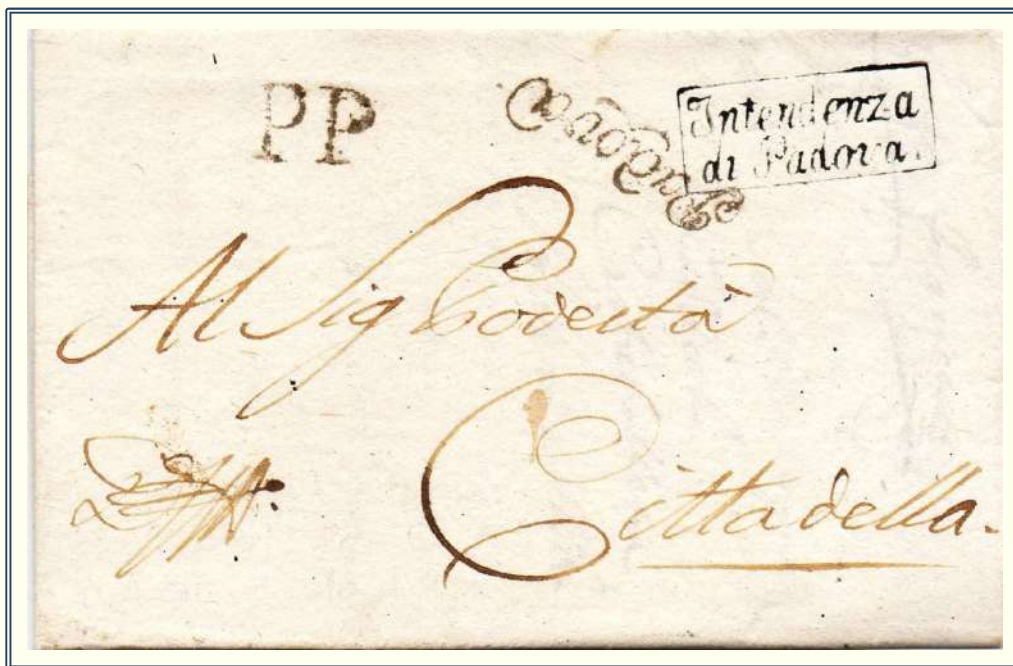 PP
Padova
Intendenza
di Padova.
Al Sig Podestà
Cittadella.